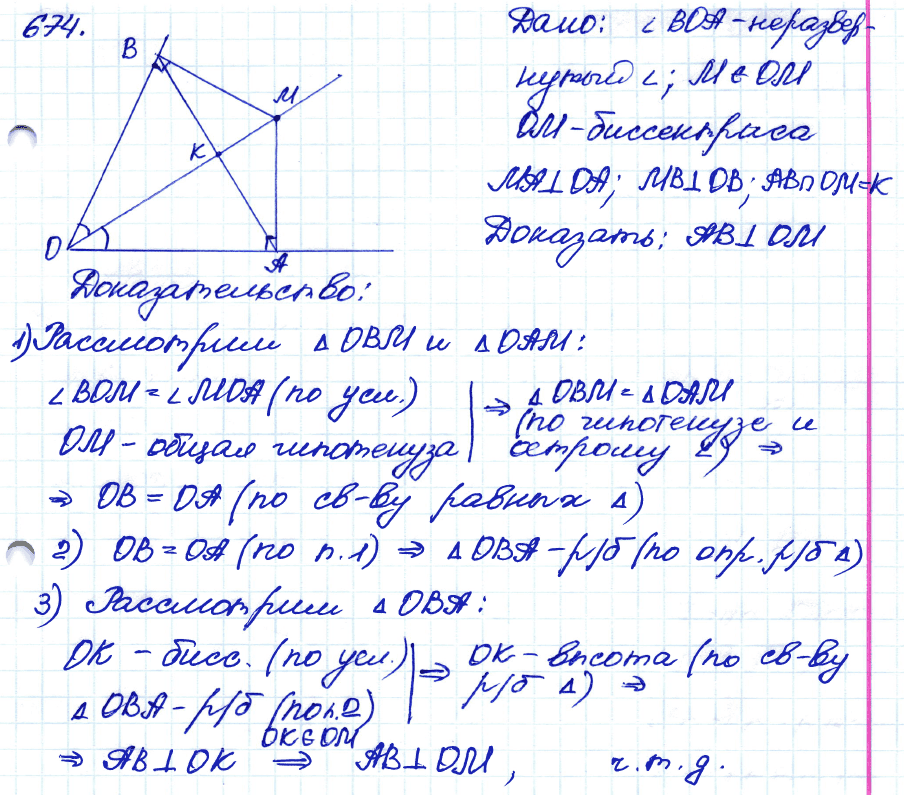 674.
B
M
K
O
A
Дано: ∠BOA - неразвер-
нутый ∠; M ∈ OM
OM - биссектриса
MA⊥OA; MB⊥OB; AB∩OM=K
Доказать: AB⊥OM
Доказательство:
1) Рассмотрим △OBM и △OAM:
∠BOM = ∠MOA (по усл.) | ⇒ △OBM = △OAM
OM - общая гипотенуза | (по гипотенузе и
острому ∠) ⇒
⇒ OB = OA (по св-ву равных △)
2) OB = OA (по п.1) ⇒ △OBA - р/б (по опр. р/б △)
3) Рассмотрим △OBA:
OK - бисс. (по усл.) | ⇒ OK - высота (по св-ву
△OBA - р/б (по п.2) | р/б △) ⇒
⇒ AB⊥OK OK∈OM ⇒ AB⊥OM, ч.т.д.